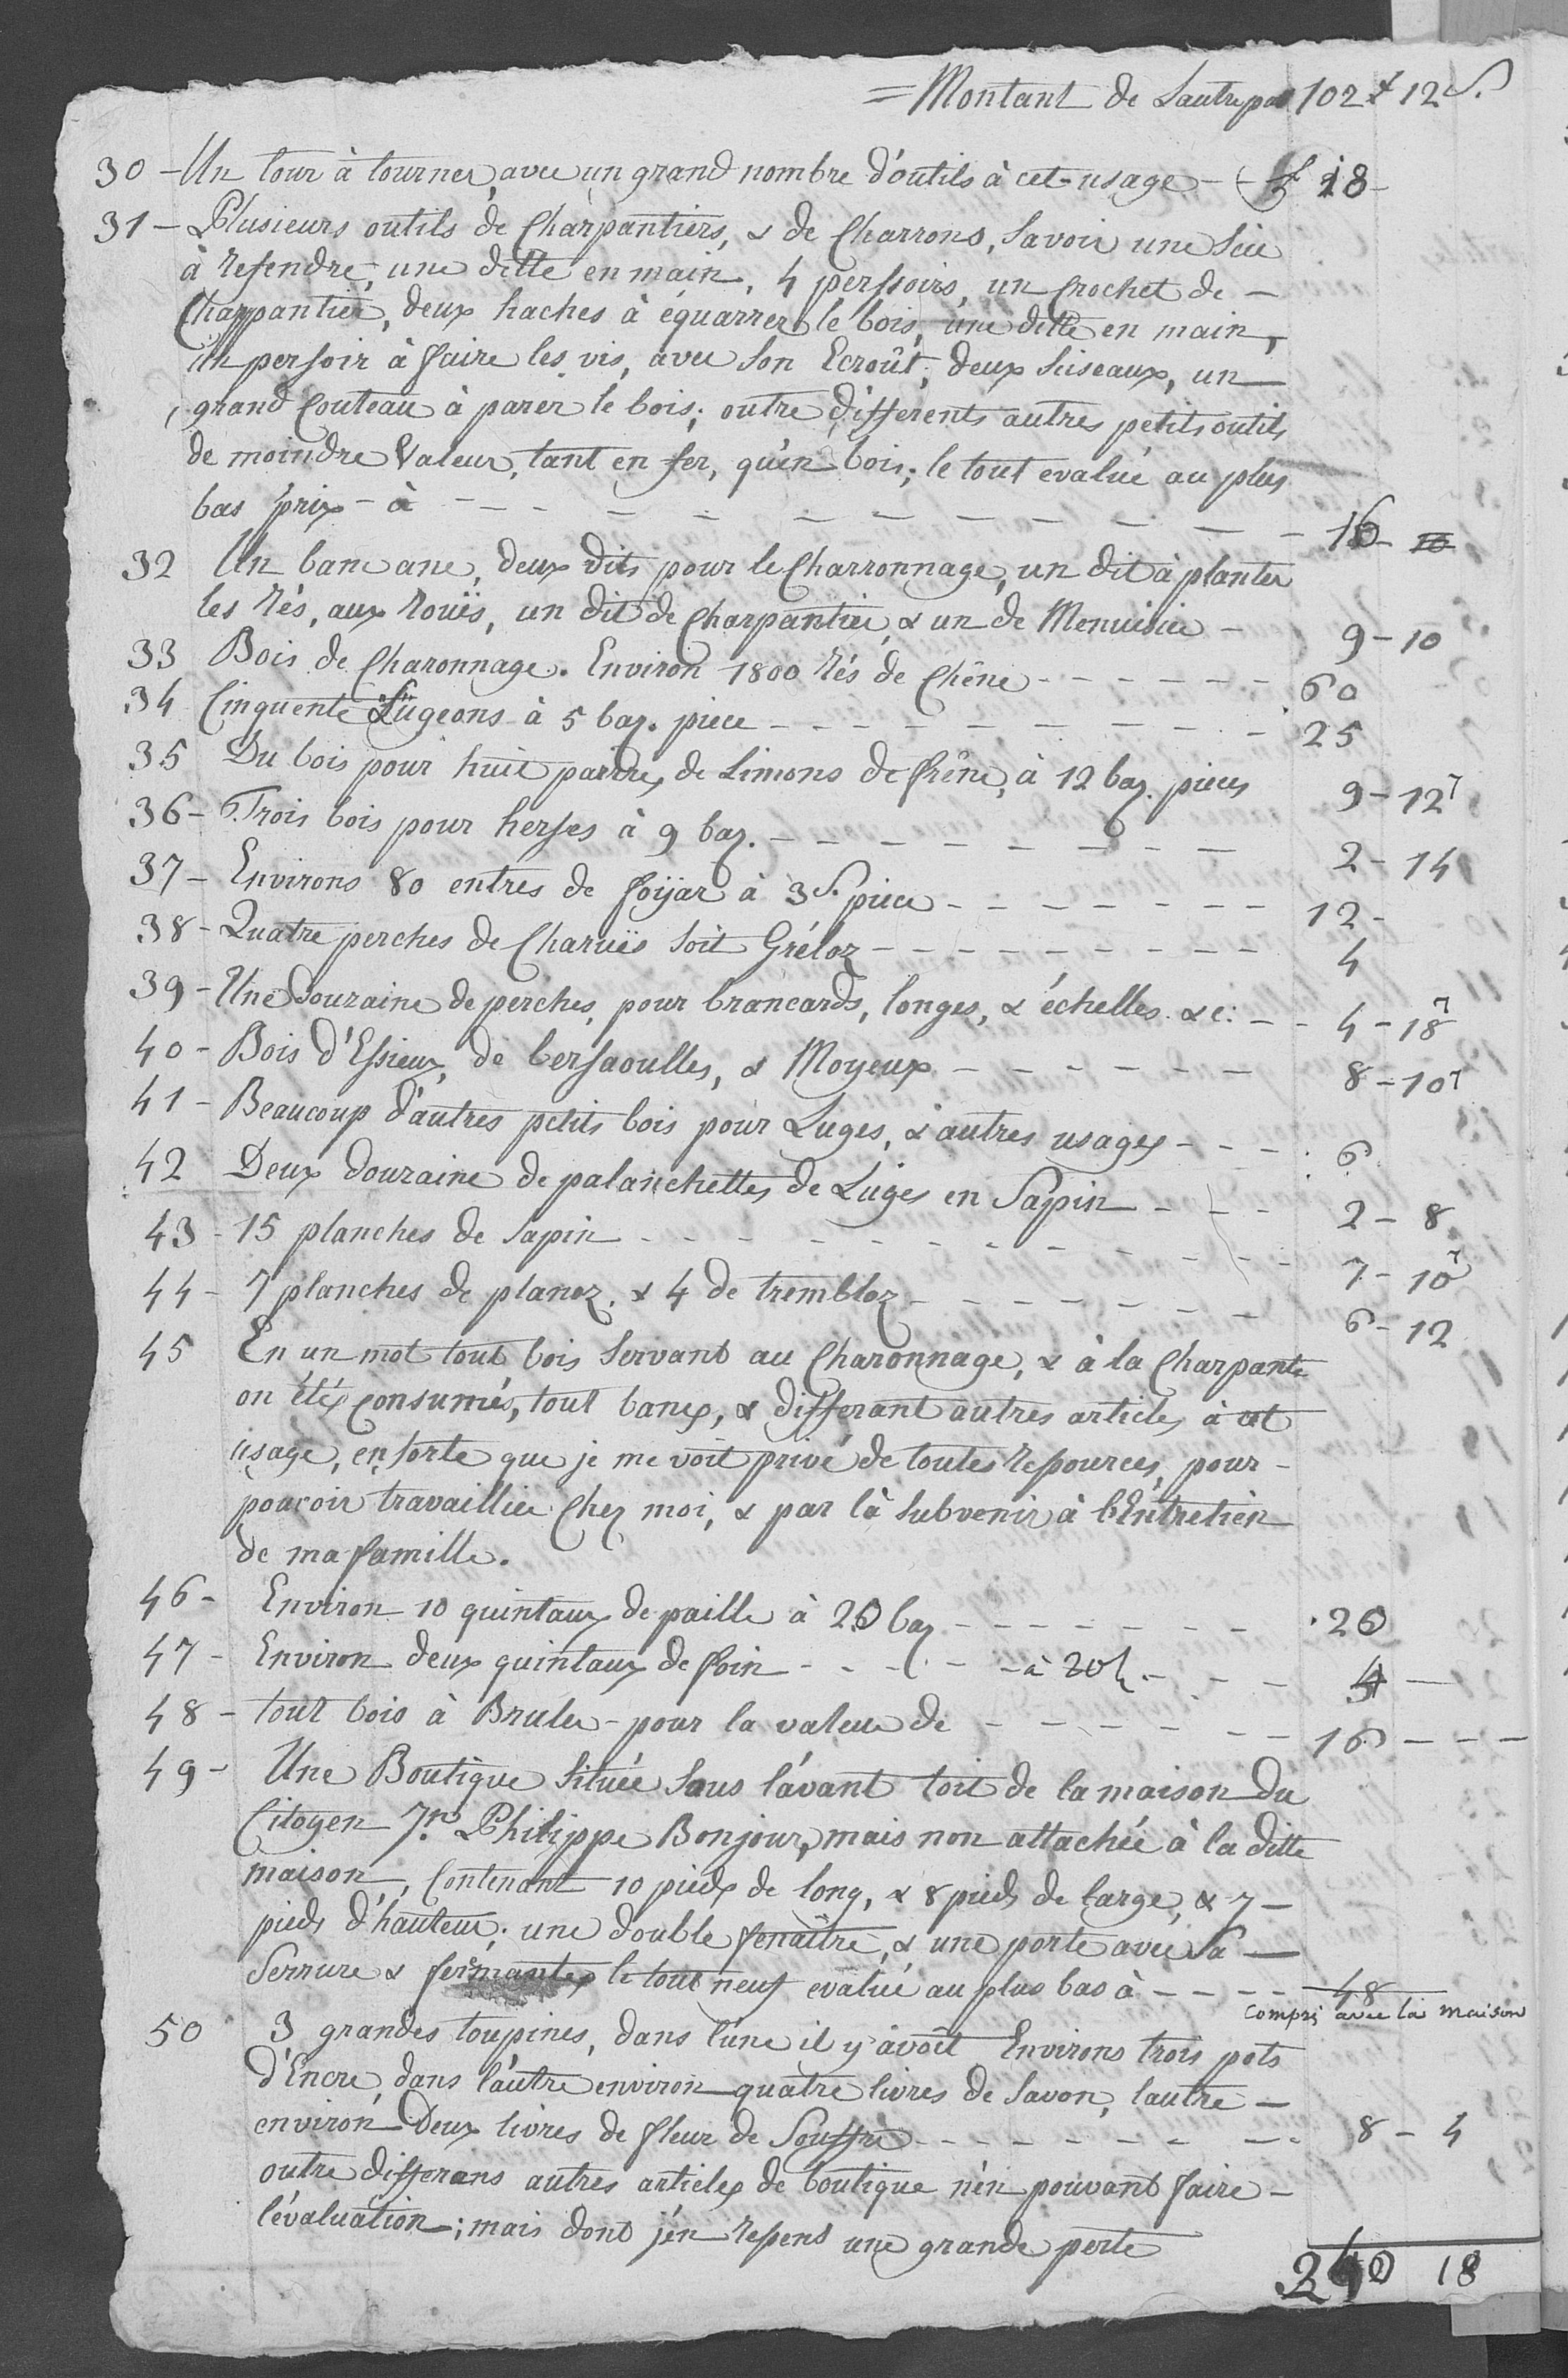 = Montant de Lautre par 102 # 12 S.
30 - Un tour à tourner, avec un grand nombre d'outils à cet usage - - £ 18 -
31 - Plusieurs outils de Charpantiers, & de Charrons, savoir une Scie
à refendre, une ditte en main, 4 perssoirs, un Crochet de -
Charpantier, deux haches à équarrer le bois, une ditte en main,
un persoir à faire les vis, avec son Ecroût, deux siseaux, un
grand Couteau à parer le bois; outre differents autres petits outils
de moindre Valeur, tant en fer, qu'en bois; le tout evalué au plus
bas prix - à - - - - - - - - - - - 16 - 10
32 Un banc ane, deux dits pour le Charronnage, un dit à planter
les rés, aux rouës, un dit de Charpantier, & un de Menuisier - 9 - 10
33 Bois de Charonnage. Environ 1800 rés de Chêne - - - - - - 60
34 Cinquente Lugeons à 5 baz. piece - - - - - - - - 25
35 Du bois pour huit paires de Limons de frêne, à 12 baz. pieces 9 - 12
36 - Trois bois pour herses à 9 baz. - - - - - - - - 2 - 14
37 - Environs 80 entres de foijar à 3 S. piece - - - - - - - 12 -
38 - Quatre perches de Charuës soit Gréloz - - - - - - - - 4
39 - Une douzaine de perches, pour brancards, longes, & échelles &c: - - 4 - 18
40 - Bois d'Essieux, de bersaoulles, & Moyeux - - - - - - 8 - 10
41 - Beaucoup d'autres petits bois pour Luges, & autres usages - - - 6
42 Deux douzaine de palanchettes de Luges en Sapin - - - 2 - 8
43 - 15 planches de sapin - - - - - - - - - - - 7 - 10
44 - 7 planches de planoz. & 4 de trembloz - - - - - - - 6 - 12
45 En un mot tout bois servant au Charonnage, & à la Charpante
on étéz consumés, tout bancs, & differant autres articles à cet
usage, en sorte que je me voit privé de toutes ressources, pour -
pouvoir travaillier Chez moi, & par là subvenir à l'Entretien
de ma famille.
46 - Environ 10 quintaux de paille à 20 baz - - - - - - - 20
47 - Environ deux quintaux de foin - - - - - à 20 b. - - - 4 -
48 - tout bois à Bruler - pour la valeur de - - - - - - - 16 - - -
49 - Une Boutique située sous l'avant toit de la maison du
Citoyen Jn. Philippe Bonjour, mais non attachée à la ditte
maison, Contenant 10 pieds de long, & 8 pieds de large, & 7 -
pieds d'hauteur; une double fenaître, & une porte avec sa -
Serrure & fermantes le tout neuf evalué au plus bas à - - - - 48
Compris avec la maison
50 3 grandes toupines, dans l'une il y avoit Environs trois pots
d'Encre, dans l'autre environ quatre livres de savon, lautre -
environ Deux livres de fleur de Souffre - - - - - - - - 8 - 4
outre differens autres articles de boutique n'en pouvant faire -
l'évaluation; mais dont j'en ressens une grande perte
240 18